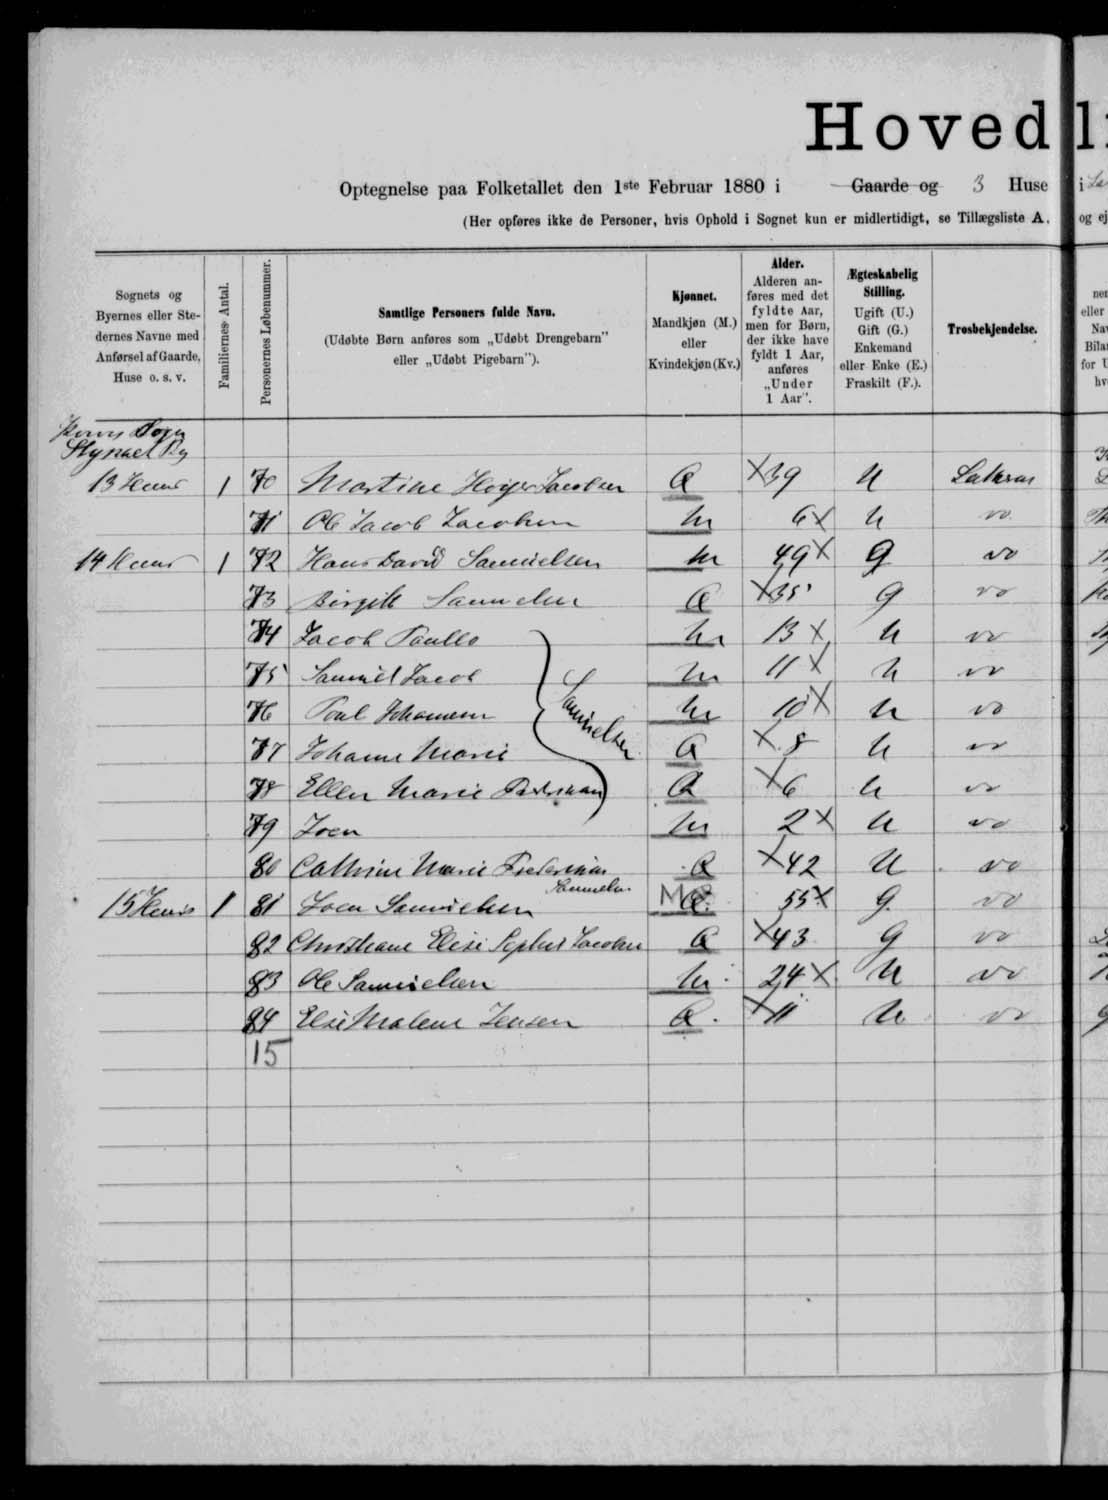 Hovedl
Optegnelse paa Folketallet den 1ste Februar 1880 i Gaarde og 3 Huse i
(Her opføres ikke de Personer, hvis Ophold i Sognet kun er midlertidigt, se Tillægsliste A. og ej
Sognets og Byernes eller Stedernes Navne med Anførsel af Gaarde, Huse o. s. v.
Familiernes Antal.
Personernes Løbenummer.
Samtlige Personers fulde Navn.
(Udøbte Børn anføres som „Udøbt Drengebarn" eller „Udøbt Pigebarn").
Kjønnet.
Mandkjøn (M.) eller Kvindekjøn (Kv.)
Alder.
Alderen anføres med det fyldte Aar, men for Børn, der ikke have fyldt 1 Aar, anføres „Under 1 Aar".
Ægteskabelig Stilling.
Ugift (U.) Gift (G.) Enkemand eller Enke (E.) Fraskilt (F.).
Trosbekjendelse.
Sogn
By
13 Huus 1 70 Martine Jacobsen Q 39 U
71 Ole Jacob Jacobsen M 6 U do
14 Huus 1 72 Hans David Samuelsen M 49 G do
73 Birgitte Samuelsen Q 35 G do
74 Jacob Paulli M 13 U do
75 Samuel Jacob M 11 U do
76 Poul Johannes M 10 U do
Samuelsen
77 Johanne Marie Q 8 U do
78 Ellen Marie Q 6 U do
79 Joen M 2 U do
80 Cathrine Marie Q 42 U do
Samuelsen
15 Huus 1 81 Joen Samuelsen M 55 G do
82 Christiane Elise Jacobsen Q 43 G do
83 Ole Samuelsen M 24 U do
84 Else Malene Jensen Q 11 U do
15